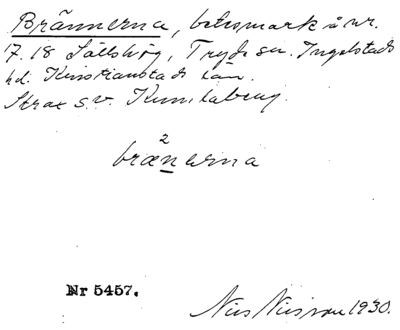 Brännerna, betesmark å nr.
17. 18 Sällshög, Tryde sn. Ingelstads
hd. Kristianstads län.
Strax s.v. Kumlaberg.
2
brænerna
Nr 5457.
Nils Nilsson 1930.